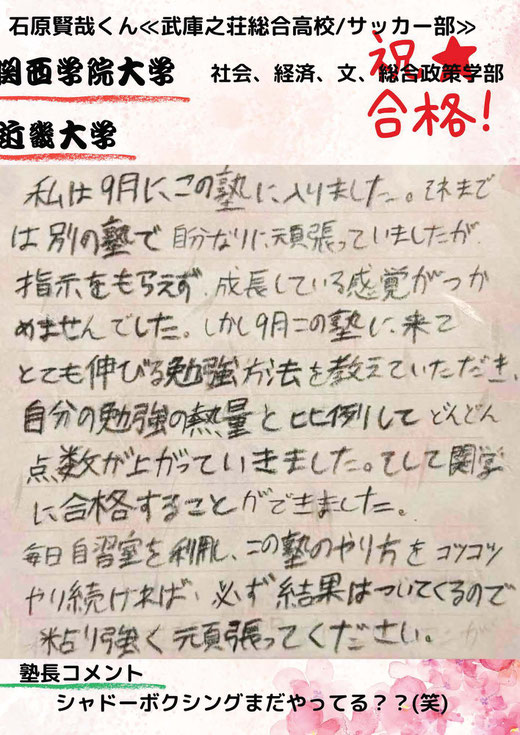 石原賢哉くん≪武庫之荘総合高校/サッカー部≫
関西学院大学 社会、経済、文、総合政策学部
祝★
合格!
近畿大学
私は9月に、この塾に入りました。それまで
は別の塾で自分なりに頑張っていましたが、
指示をもらえず、成長している感覚がつか
めませんでした。しかし9月この塾に来て
とても伸びる勉強方法を教えていただき、
自分の勉強の熱量と比例してどんどん
点数が上がっていきました。そして関学
に合格することができました。
毎日自習室を利用し、この塾のやり方をコツコツ
やり続ければ、必ず結果はついてくるので
粘り強く頑張ってください。
塾長コメント
シャドーボクシングまだやってる??(笑)